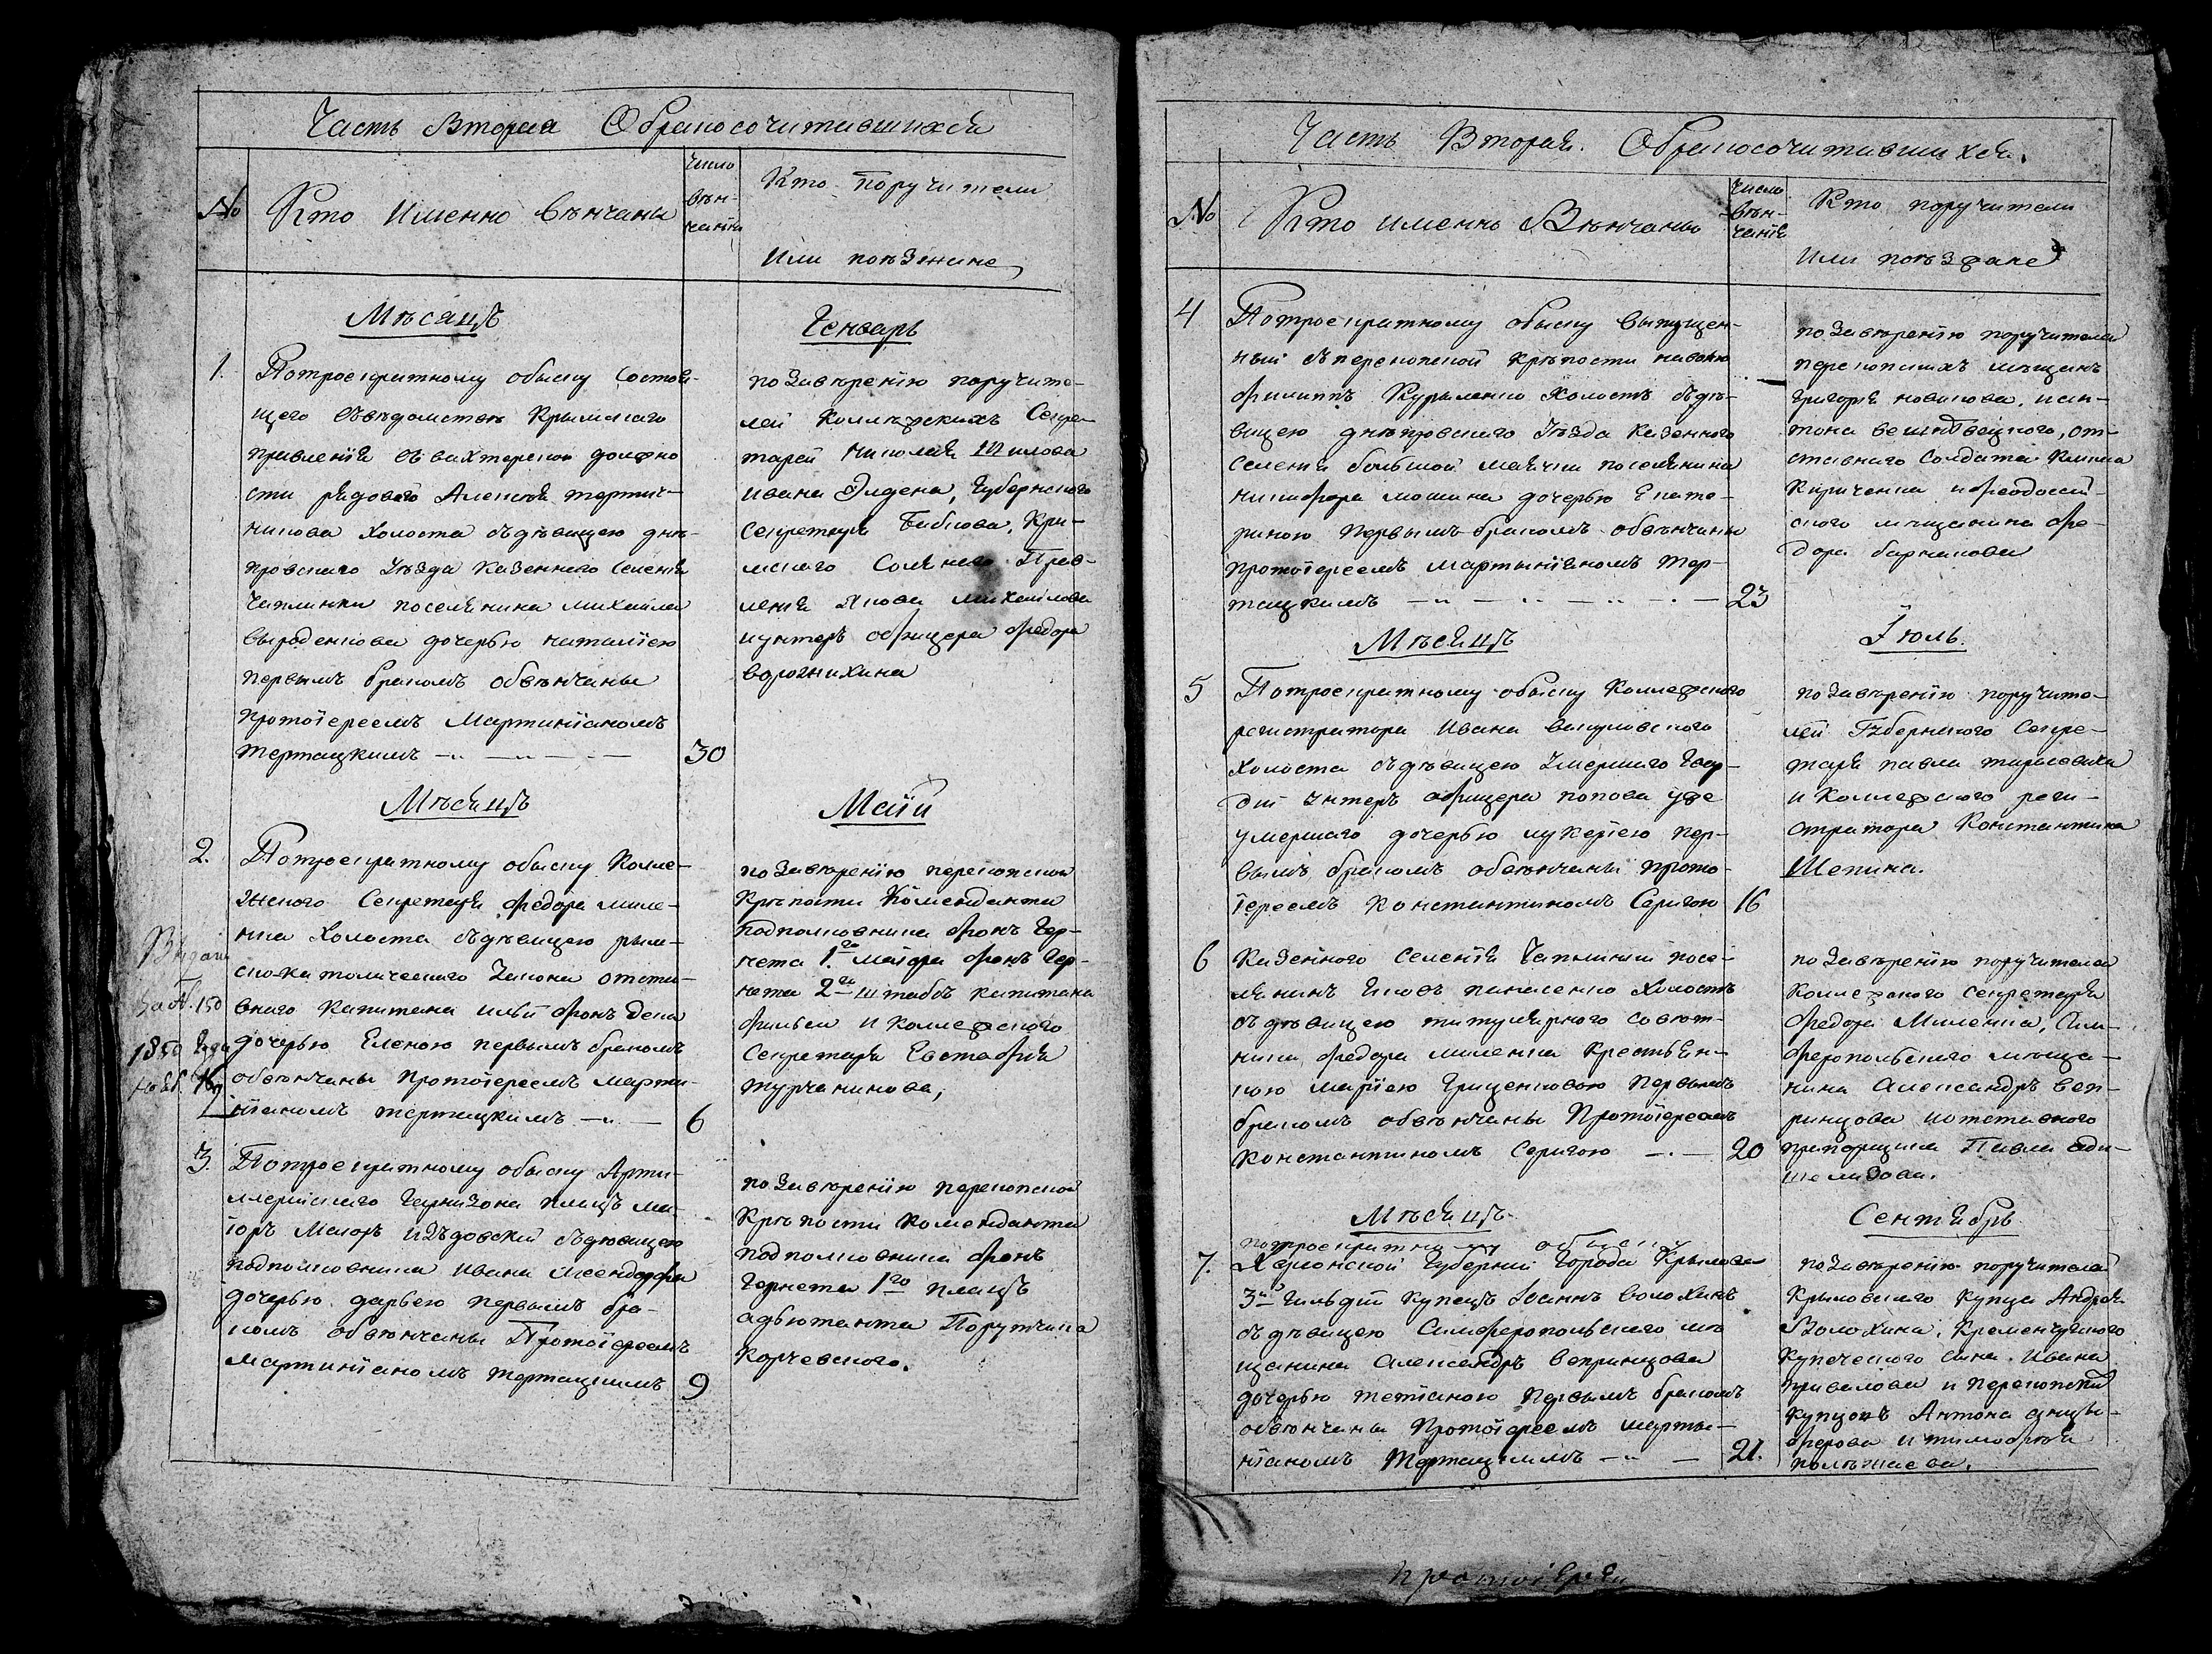 Часть Вторая Обракосочитавшихся
№
Кто Именно вѣнчаны
число
вѣн-
чанія
Кто поручители
Или поѣзжане
Мѣсяцъ
Генварь
1.
Потроекратному обыску состоя-
щего въвѣдомствѣ Крымскаго
правленія въ вахтерской должно
сти рядового Алексѣя
холоста съдѣвицею днѣ-
провскаго уѣзда казенного селенія
Чаплинки поселянина михайла
дочерью наталіею
первымъ бракомъ обвѣнчаны
протоіереемъ Мартиніаномъ
тертацкимъ
30
позавѣренію поручите-
лей коллежскихъ Секре
тарей николая Шилова
ивана Элдена, губернского
секретаря Бибкова, Кры-
мского Солянаго Прав-
ленія Якова михайлова
иунтеръ офицера федора
ворогнихина
Мѣсяцъ
Маія
2.
Потроекратному обыску Колле-
жского Секретаря федора миле-
нка холоста съдѣвицею рим-
скокатолическаго Закона отста-
вного капитана фонъ дена
дочерью Еленою первымъ бракомъ
обвѣнчаны протоіереемъ марти-
ніаномъ тертацкимъ
6
150
1850 года
позавѣренію перекопской
Крѣпости Коменданта
подполковника фонъ Гер-
нета 1го маіора фонъ Гер-
нета 2го штабсъ капитана
и коллежского
Секретаря Евстафія
турчанинова,
3.
Потроекратному обыску Арти-
ллерійскаго гарнизона плацъ ма-
іоръ съдѣвицею
подполковника ивана
дочерью дарьею первымъ бра-
комъ обвѣнчаны Протоіереемъ
мартиніаномъ тертацкимъ
9
позавѣренію перекопской
Крѣпости коменданта
подполковника фонъ
Гернета 1го плацъ
адъютанта Порутчика
Корчевского.
Часть Вторая. Обракосочитавшихся.
№
Кто именнь Вѣнчаны
число
вѣн-
чанія
Кто поручители
Или поѣзжане
4
Потроекратному обыску выпущен-
ный съперекопской крѣпости
филиппъ Куриленко холостъ съдѣ-
вицею днѣпровскаго уѣзда казенного
селенія большой маячки поселянина
никифора мошина дочерью Екате-
риною первымъ бракомъ обвѣнчаны
протоіереемъ мартиніаномъ тер-
тацкимъ
23
позавѣренію поручителей
перекопскихъ мѣщанъ
григорія новикова, иан-
тона, от-
ставнаго солдата Клима
Кириченка ифеодосій-
ского мѣщанина фе-
дора барчакова
Мѣсяцъ
Іюль.
5
Потроекратному обыску Коллежского
регистратора Ивана викуловского
холоста съдѣвицею умершаго гвар-
діи унтеръ офицера попова уже
умершаго дочерью лукеріею пер-
вымъ бракомъ обвѣнчаны прото-
іереемъ константиномъ Серигою
16
позавѣренію поручите-
лей Губернского Секре-
таря павла тарасовика
и коллежского реги-
стратора Константина
Щепина.
6
казенного селенія Чаплинки посе-
лянинъ Яковъ панасенко холостъ
съдѣвицею титулярного совѣт-
ника федора миленка крестьян-
кою маріею гриценковою первымъ
бракомъ обвѣнчаны Протоіереемъ
константиномъ Серигою
20
позавѣренію поручителей
Коллежского секретаря
федора Миленка, Сим-
феропольскаго мѣща-
нина александръ веп-
ринцова иотставного
прапорщика Павла ади-
шелидова.
Мѣсяцъ
Сентябрь
потроекратному обыску
7.
Херсонской губерніи города Крылова
3й гильдіи купецъ Іоаннъ волохинъ
съдѣвицею Симферопольскаго мѣ
щанина александръ вепринцова
дочерью татіаною первымъ бракомъ
обвѣнчаны Протоіереемъ марти-
ніаномъ Тертацкимъ
21.
позавѣренію поручителей
крыловского купца Андрея
Волохина, Кременчугского
купеческого сына Ивана
привалова и перекопскихъ
купцовъ Антона
и тимофѣя
полѣжаева.
протоіерей